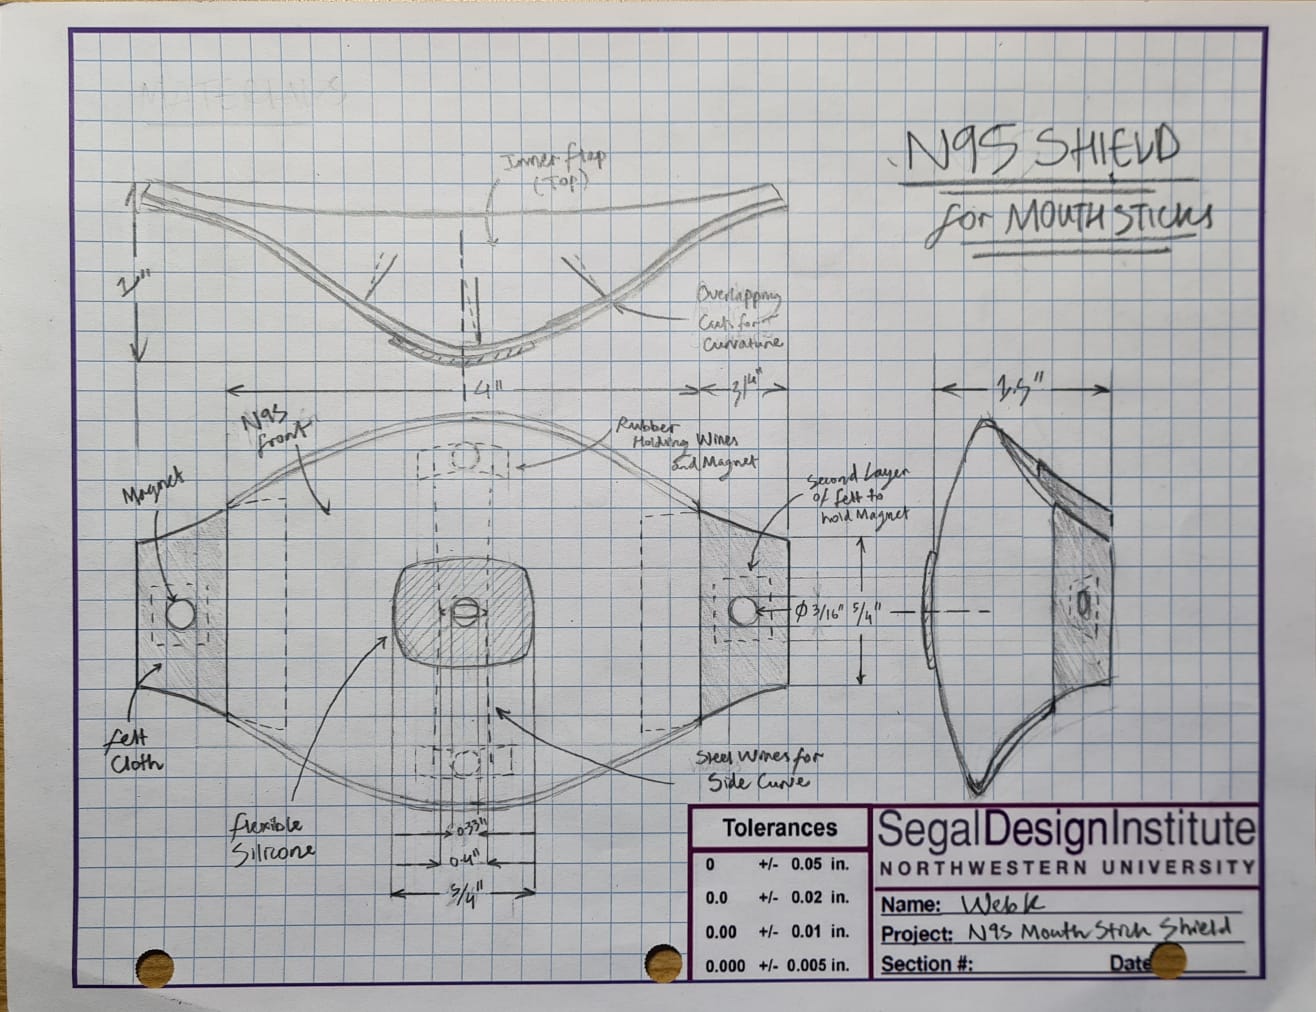 MATERIALS
N95 SHIELD
for MOUTH STICKS
Inner flap
(Top)
1"
Overlapping
Cuts for
Curvature
4"
3/4"
1.5"
N95
front
Rubber
Holding Wires
and Magnet
Magnet
Second Layer
of felt to
hold Magnet
Ø 3/16"
5/4"
felt
Cloth
Steel Wires for
Side Curve
flexible
Silicone
0.33"
0.4"
5/4"
Tolerances
0 +/- 0.05 in.
0.0 +/- 0.02 in.
0.00 +/- 0.01 in.
0.000 +/- 0.005 in.
SegalDesignInstitute
NORTHWESTERN UNIVERSITY
Name:
Project: N95 Mouth Stick Shield
Section #:
Date